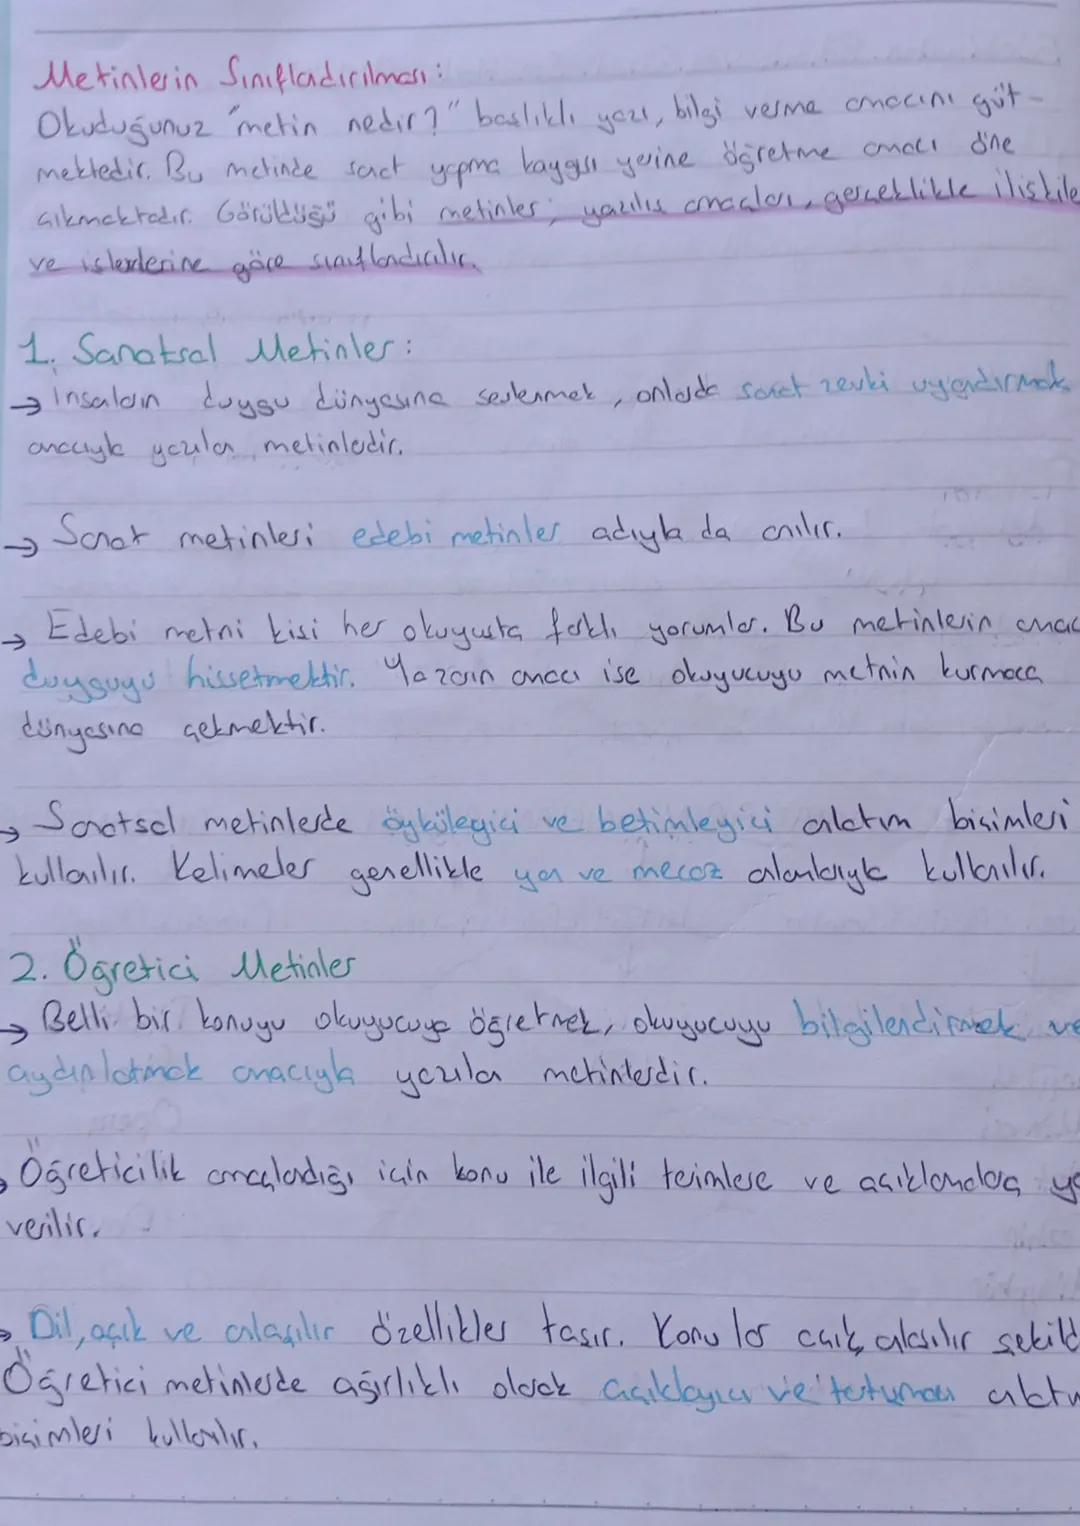 Metinlerin Sınıflandırılması:
Okuduğunuz "metin nedir?" başlıklı yazı, bilgi verme amacını güt-
mektedir. Bu metinde sanat yapma kaygısı yerine öğretme amacı öne
çıkmaktadır. Görüldüğü gibi metinler; yazılış amaçları, gerçeklikle ilişkile
ve işlevlerine göre sınıflandırılır.
1. Sanatsal Metinler:
→ İnsaların duygu dünyasına seslenmek, onlarda sanat zevki uyandırmak
amacıyla yazılan metinlerdir.
→ Sanat metinleri edebi metinler adıyla da anılır.
→ Edebi metni kişi her okuyuşta farklı yorumlar. Bu metinlerin amac
duyguyu hissetmektir. Yazarın amacı ise okuyucuyu metnin kurmaca
dünyasına çekmektir.
→ Sanatsal metinlerde öyküleyici ve betimleyici anlatım biçimleri
kullanılır. Kelimeler genellikle yan ve mecaz anlamlarıyla kullanılır.
2. Öğretici Metinler
→ Belli bir konuyu okuyucuya öğretmek, okuyucuyu bilgilendirmek ve
aydınlatmak amacıyla yazılan metinlerdir.
→ Öğreticilik amaçlandığı için konu ile ilgili terimlere ve açıklamalara ye
verilir.
→ Dil, açık ve anlaşılır özellikler taşır. Konular açık, anlaşılır şekild
Öğretici metinlerde ağırlıklı olarak açıklayıcı ve tartışmacı anlatı
biçimleri kullanılır.